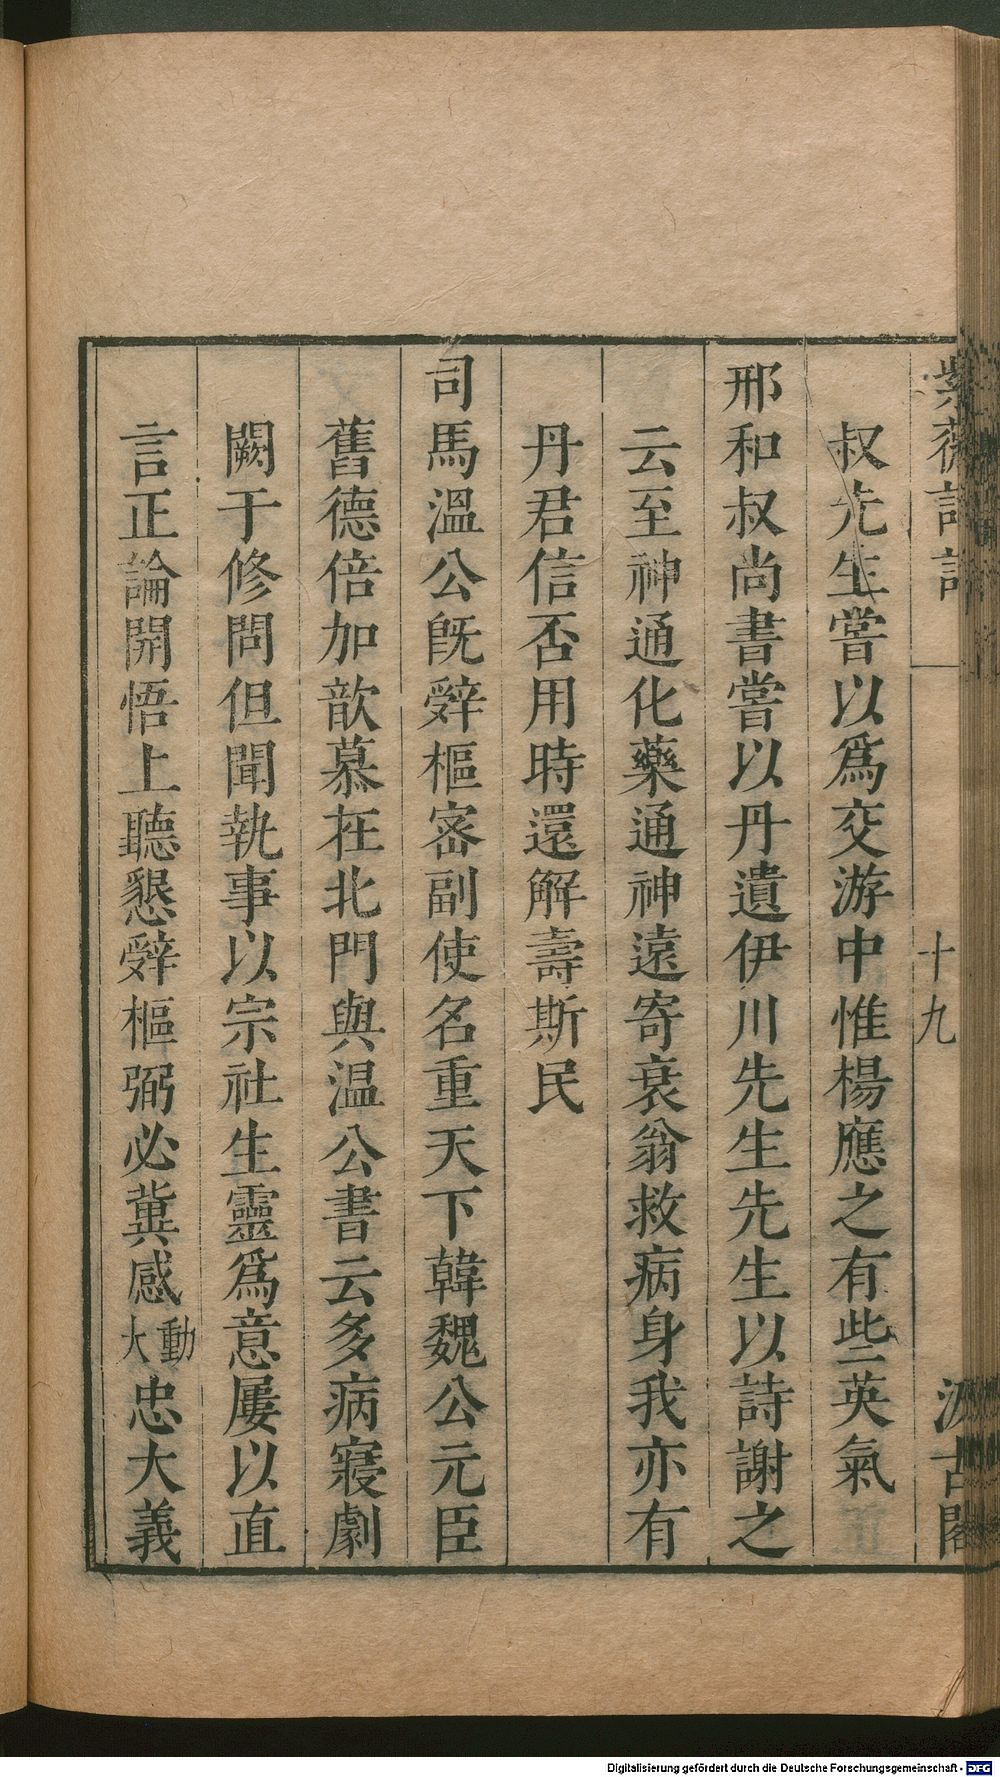 紫薇詩話
十九
汲古閣
叔先生嘗以爲交游中惟楊應之有些英氣
邢和叔尚書嘗以丹遺伊川先生先生以詩謝之
云至神通化藥通神遠寄衰翁救病身我亦有
丹君信否用時還解壽斯民
司馬溫公旣辤樞密副使名重天下韓魏公元臣
舊德倍加歆慕在北門與温公書云多病寖劇
闕于修問但聞執事以宗社生靈爲意屢以直
言正論開悟上聽懇辤樞弼必冀感動大忠大義
Digitalisierung gefördert durch die Deutsche Forschungsgemeinschaft - DFG